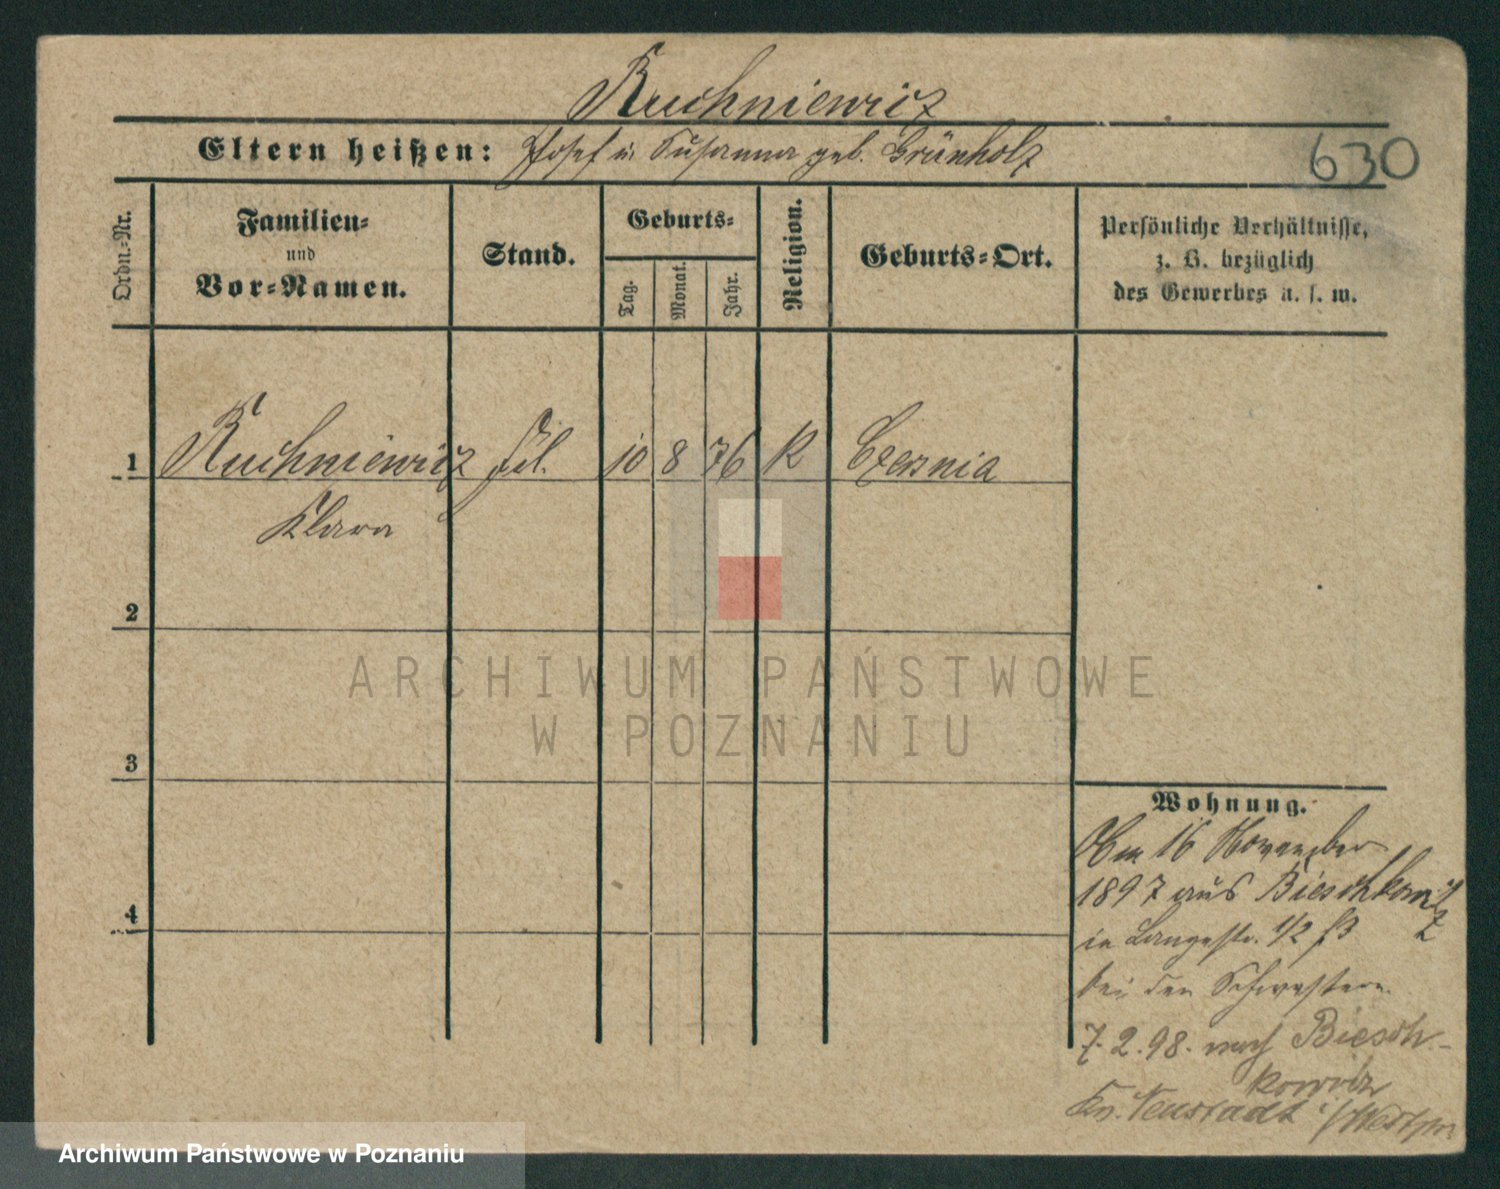 Ruchniewicz
Eltern heißen: Josef u. Susanna geb. Grünholz
630
Ordn.-Nr.
Familien-
und
Vor-Namen.
Stand.
Geburts-
Tag.
Monat.
Jahr.
Religion.
Geburts-Ort.
Persönliche Verhältnisse,
z. B. bezüglich
des Gewerbes u. s. w.
1 Ruchniewicz Frl. 10 8 76 K Czersnia
Klara
2
3
4
ARCHIWUM PAŃSTWOWE
W POZNANIU
Wohnung.
16 November
1897 aus Bieschkowitz
in Langestr. 1/2
bei den Schwestern
7.2.98. nach Biesch-
kowitz
Kr. Neustadt i/Westpr
Archiwum Państwowe w Poznaniu